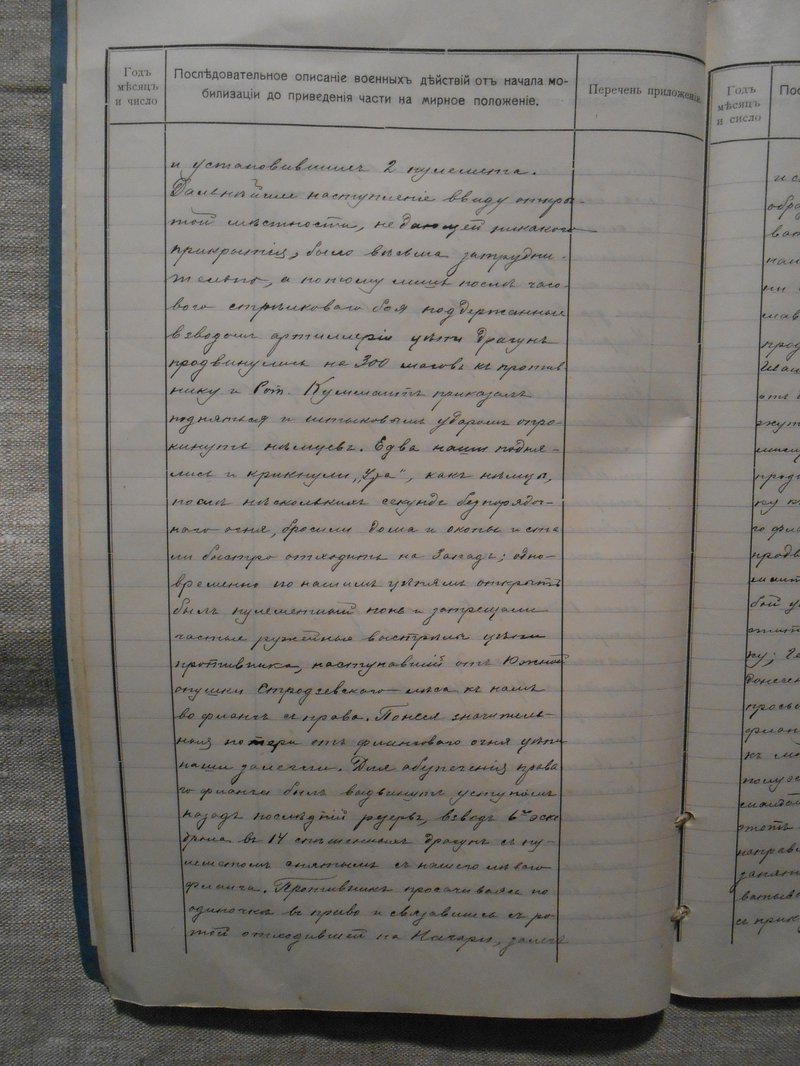 Годъ
мѣсяцъ
и число
Послѣдовательное описаніе военныхъ дѣйствій отъ начала мо-
билизаціи до приведенія части на мирное положеніе.
Перечень приложеній.
и установившимъ 2 пулемета.
Дальнѣйшее наступленіе ввиду откры-
той мѣстности, недающей никакого
прикрытія, было весьма затрудни-
тельно, а потому лишь послѣ часо-
вого стрѣлковаго боя поддержанные
взводомъ артиллеріи цѣпи драгунъ
продвинулись на 300 шаговъ къ против-
нику и Рот. приказалъ
подняться и штыковымъ ударомъ опро-
кинуть нѣмцевъ. Едва наши подня-
лись и крикнули „Ура", какъ нѣмцы,
послѣ нѣсколькихъ секундъ безпорядоч-
наго огня, бросили дома и окопы и ста-
ли быстро отходить на Западъ; одно-
временно по нашимъ цѣпямъ открытъ
былъ пулеметный огонь и затрещали
частые ружейные выстрѣлы цѣпи
противника, наступавшій отъ Южной
опушки Стродзевского лѣса къ намъ
во флангъ справа. Понеся значитель-
ныя потери отъ флангового огня цѣпи
наши залегли. Для обезпеченія права-
го фланга былъ выдвинутъ уступомъ
назадъ послѣдній резервъ, взводъ 6го эска-
дрона въ 14 спѣшенныхъ драгунъ съ пу-
леметомъ снятымъ съ нашего лѣваго
фланга. Противникъ просачиваясь по
одиночкѣ вправо и связавшись съ ро-
той отходившей на залегъ
Годъ
мѣсяцъ
и число